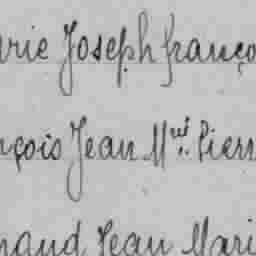 rie Joseph franço
nçois Jean Mel Pierr
naud Jean Mari